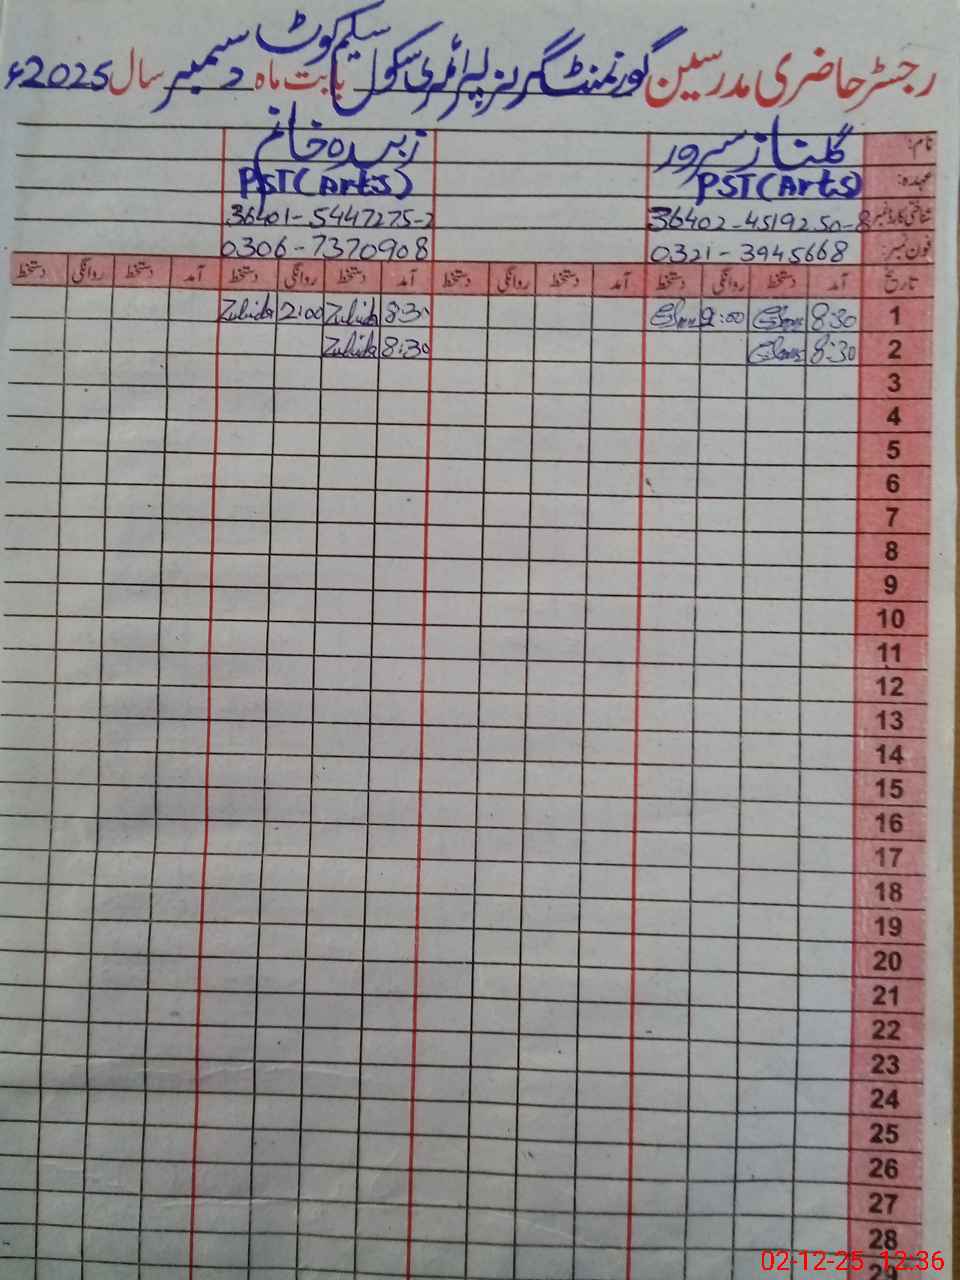 رجسٹر حاضری مدرسین گورنمنٹ گرلز پرائمری سکول سلیم کوٹ بابت ماہ دسمبر سال 2025ء
نام: گلناز سرور زبیدہ خانم
عہدہ: PST (Arts) PST (Arts)
شناختی کارڈ نمبر 36402-4519250-8 36401-5447275-2
فون نمبر: 0321-3945668 0306-7370908
تاریخ آمد دستخط روانگی دستخط آمد دستخط روانگی دستخط آمد دستخط روانگی دستخط آمد دستخط روانگی دستخط
1 8:30 2:00 8:30 Zubida 2:00 Zubida
2 8:30 8:30 Zubida
3
4
5
6
7
8
9
10
11
12
13
14
15
16
17
18
19
20
21
22
23
24
25
26
27
28
29
02-12-25 12:36